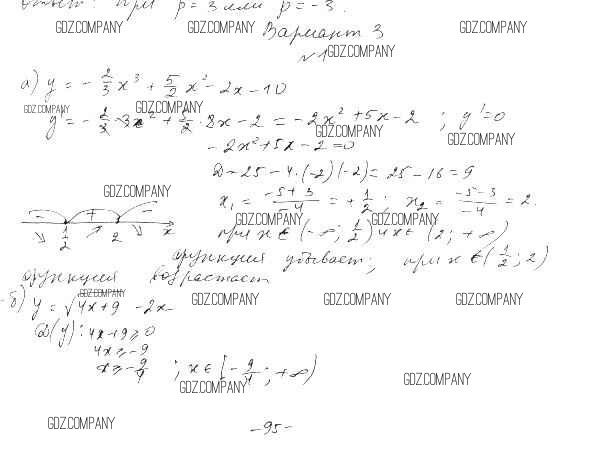 Ответ: при p = 3 или p = -3.
GDZ.COMPANY GDZ.COMPANY GDZ.COMPANY
Вариант 3
№1 GDZ.COMPANY
а) y = -2/3 x³ + 5/2 x² - 2x - 10
GDZ.COMPANY GDZ.COMPANY
y' = -2/3 · 3x² + 5/2 · 2x - 2 = -2x² + 5x - 2 ; y' = 0
GDZ.COMPANY GDZ.COMPANY
-2x² + 5x - 2 = 0
D = 25 - 4 · (-2)(-2) = 25 - 16 = 9
GDZ.COMPANY
x₁ = (-5+3)/-4 = +1/2 ; x₂ = (-5-3)/-4 = 2.
GDZ.COMPANY GDZ.COMPANY
- + -
1/2 2 x
при x ∈ (-∞; 1/2) и x ∈ (2; +∞)
функция убывает; при x ∈ (1/2; 2)
функция возрастает
GDZ.COMPANY
б) y = √4x+9 - 2x
GDZ.COMPANY GDZ.COMPANY GDZ.COMPANY
D(y): 4x+9 ≥ 0
4x ≥ -9
x ≥ -9/4 ; x ∈ [-9/4; +∞)
GDZ.COMPANY GDZ.COMPANY
GDZ.COMPANY
-95-